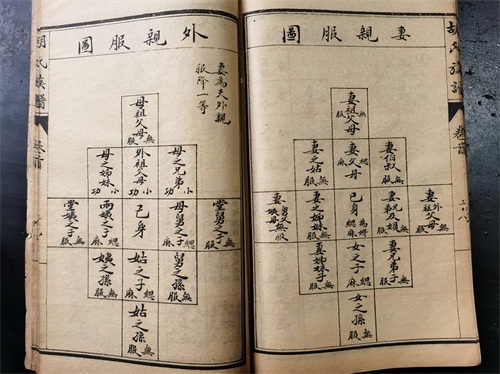 胡氏族譜
卷首
妻親服圖
妻祖父母
無服
妻伯叔
無服
妻父母
緦麻
妻之姑
無服
妻外祖父母
無服
妻兄弟及婦
無服
己身
緦麻
妻之姊妹
無服
無服
妻兄弟子
無服
女之子
緦麻
妻姊妹子
無服
女之孫
無服
外親服圖
妻為夫外親
服降一等
母祖父母
無服
母之兄弟
小功
外祖父母
小功
母之姊妹
小功
堂舅之子
無服
母舅之子
緦麻
己身
兩姨之子
緦麻
堂姨之子
無服
舅之孫
無服
姑之子
緦麻
姨之孫
無服
姑之孫
無服
胡氏族譜
卷首